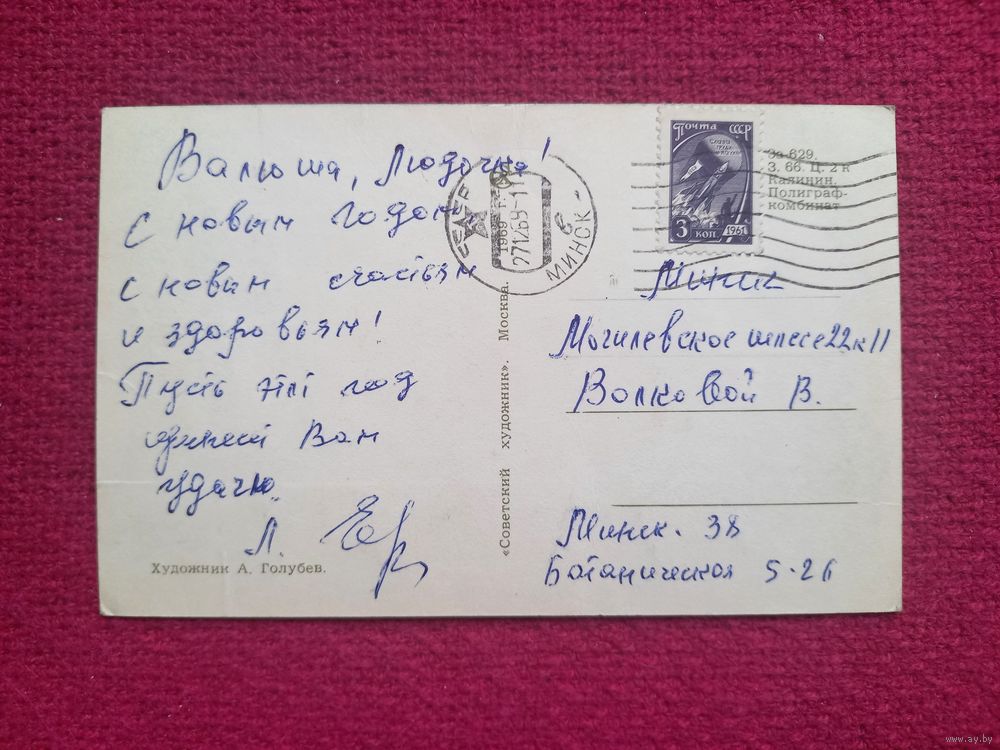 Валюша, Людочка!
С новым годом
с новым счастьем
и здоровьем!
Пусть этот год
принесёт Вам
удачу.
Л.
Художник А. Голубев.
«Советский художник». Москва. 1969 г.
27 12 69 - 11
МИНСК
Почта СССР
3 коп. 1961
За 629.
З. 66. Ц. 2 к
Калинин.
Полиграф-
комбинат
Минск
Могилевское шоссе 22 к 11
Волковой В.
Минск. 38
Ботаническая 5-26
www.ay.by